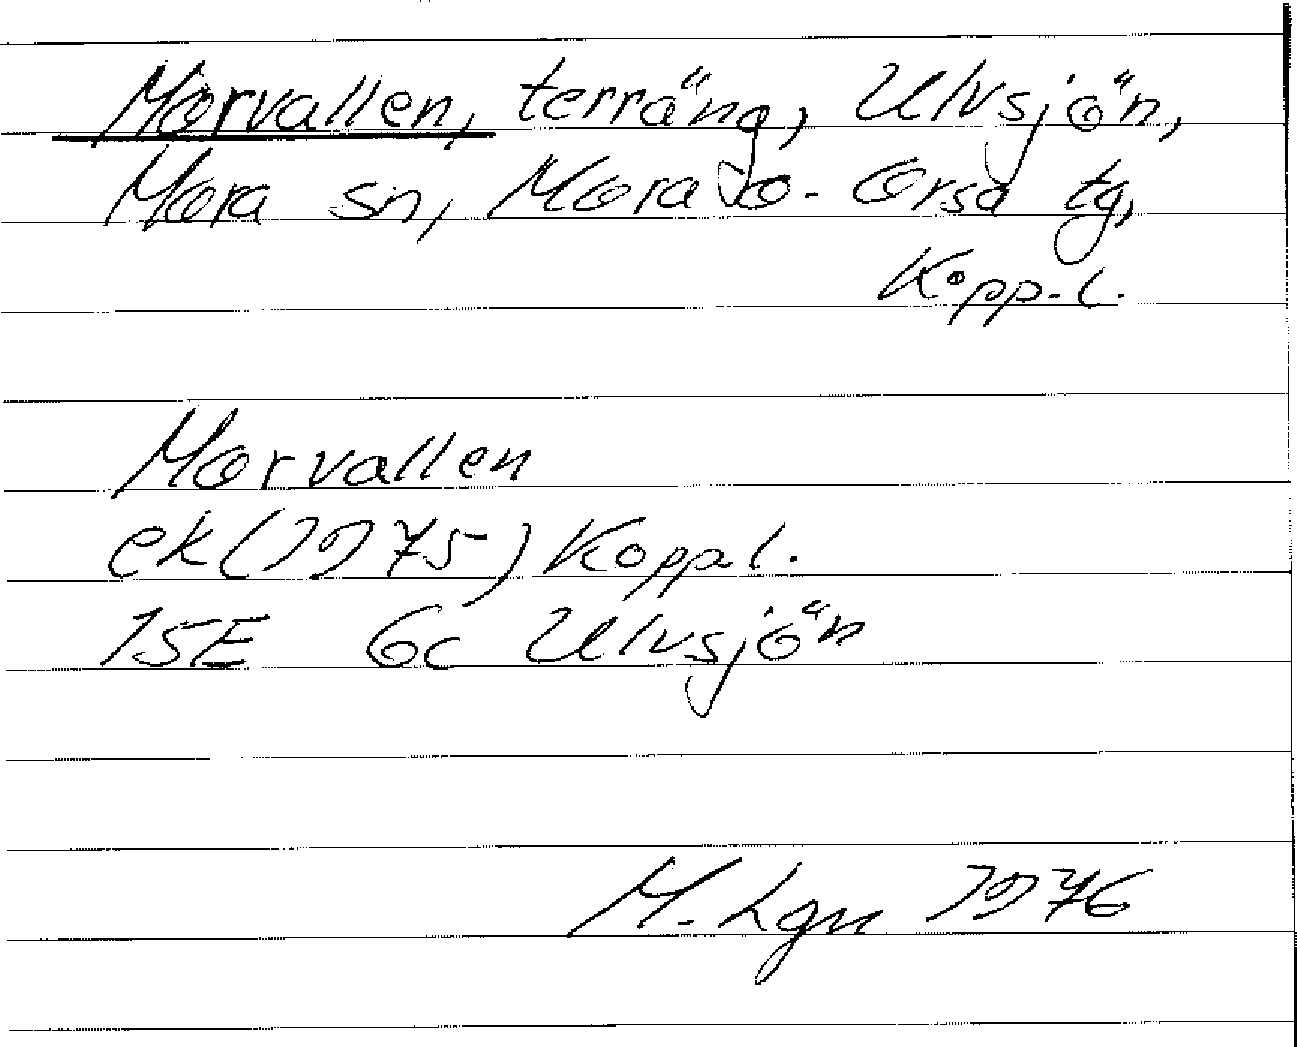 Morvallen, terräng, Ulvsjön,
Mora sn, Mora o. Orsa tg,
Kopp.l.
Morvallen
ek (1975) Kopp.l.
15E 6c Ulvsjön
M. Lgn 1976